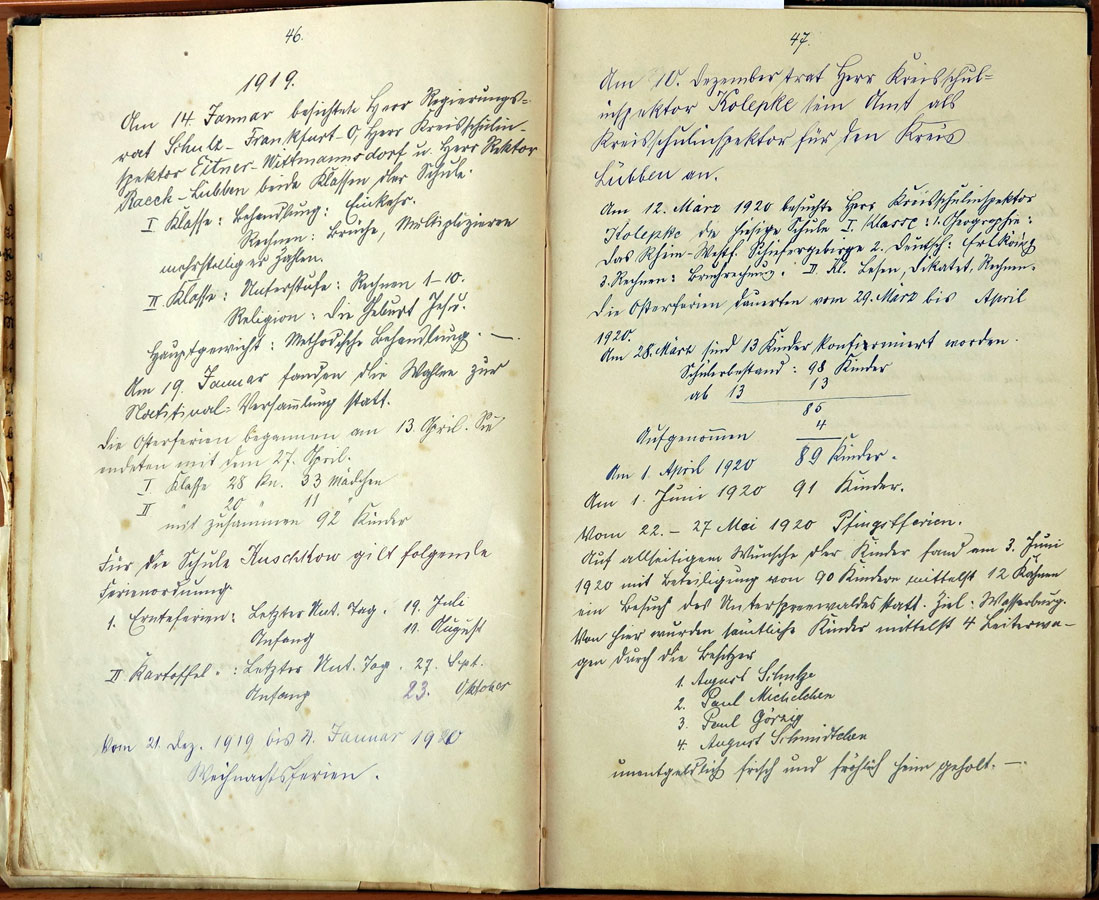 46.
1919.
Am 14. Januar besichtete Herr Regierungs-
rat Schulz-Frankfurt O, Herr Kreisschulin-
spektor Eitner-Wittmannsdorf u. Herr Rektor
Raeck-Lübben beide Klassen der Schule.
I Klasse: Behandlung: Einkehr.
Rechnen: Brüche, Multiplizieren
mehrstelliger Zahlen.
II Klasse: Unterstufe: Rechnen 1-10.
Religion: Die Geburt Jesu.
Hauptgewicht: Methodische Behandlung. —
Am 19. Januar fanden die Wahlen zur
National-Versammlung statt.
Die Osterferien begannen am 13. April. Sie
endeten mit dem 27. April.
I Klasse 28 Kn. 33 Mädchen
II " 20 " 11 "
mit zusammen 92 Kinder
Für die Schule Kuschkow gilt folgende
Ferienordnung
1. Ernteferien: Letzter Unt. Tag. 19. Juli
Anfang 11. August
II Kartoffel. : Letzter Unt. Tag. 27. Sept.
Anfang 23. Oktober
Vom 21. Dez. 1919 bis 4. Januar 1920
Weihnachtsferien.
47.
Am 10. Dezember trat Herr Kreisschul-
inspektor Kolepke sein Amt als
Kreisschulinspektor für den Kreis
Lübben an.
Am 12. März 1920 besuchte Herr Kreisschulinspektor
Kolepke die hiesige Schule I. Klasse: 1. Geographie:
Das Rhein-Westf. Schiefergebirge 2. Deutsch: Erlkönig
3. Rechnen: Bruchrechnung. II Kl. Lesen, Diktat, Rechnen.
Die Osterferien dauerten vom 29. März bis April
1920.
Am 28. März sind 13 Kinder konfirmiert worden.
Schülerbestand: 98 Kinder
ab 13 13
85
4
Aufgenommen
Am 1. April 1920 89 Kinder.
Am 1. Juni 1920 91 Kinder.
Vom 22. – 27 Mai 1920 Pfingstferien.
Auf allseitigem Wunsche der Kinder fand am 3. Juni
1920 mit Beteiligung von 90 Kindern mittelst 12 Kähnen
ein Besuch des Unterspreewaldes statt. Ziel: Wasserburg.
Von hier wurden sämtliche Kinder mittelst 4 Leiterwa-
gen durch die Besitzer
1. August Schulze
2. Paul Michelchen
3. Paul Görzig
4. August Schmidtchen
unentgeldlich frisch und fröhlich heim geholt. —